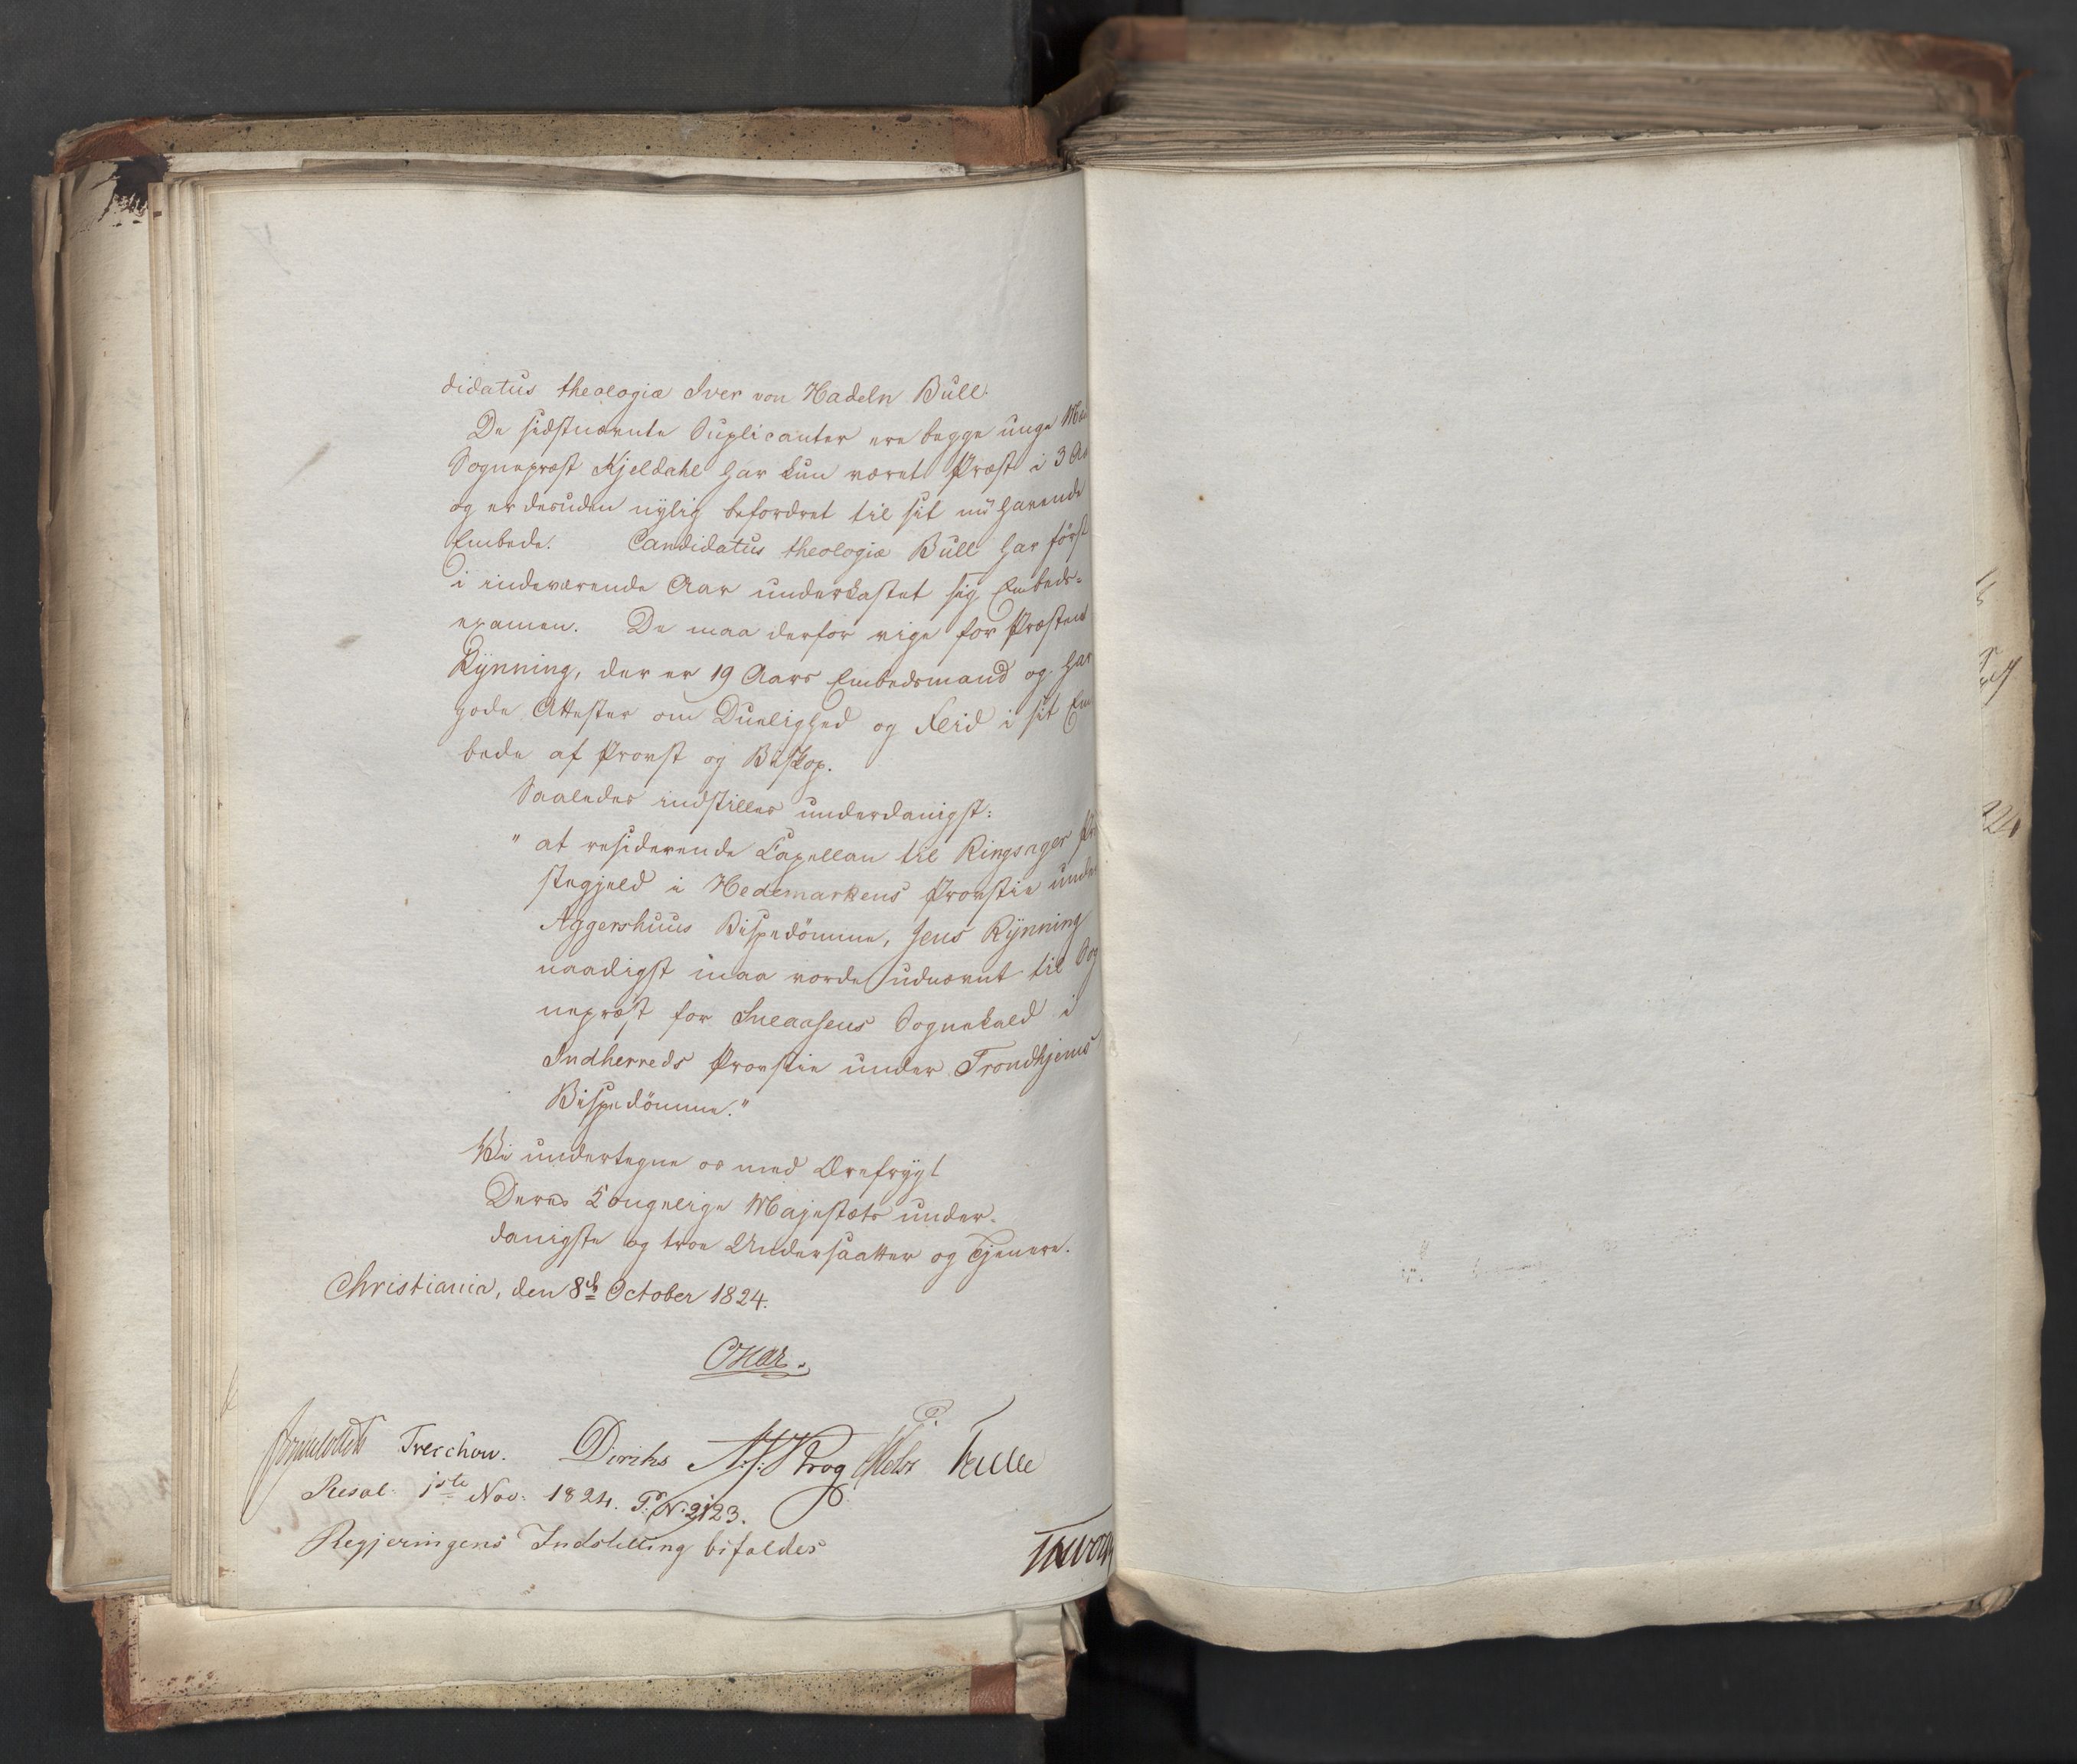 didatus theologiæ Iver von Hadeln Büll.
De sidstnævnte Suplicanter ere begge unge
Sognepræst Kjeldahl har kun været Præst i 3
og er desuden nylig befordret til sit nu havende
Embede. Candidatus theologiæ Büll har først
i indeværende Aar underkastet sig Embeds-
examen. De maa derfor vige for Præsten
Rynning, der er 19 Aars Embedsmand og har
gode Attester om Duelighed og Fliid i sit Em
bede af Provst og Biskop.
Saaledes indstilles underdanigst:
" at residerende Capellan til Ringsager Præ
stegjeld i Hedemarkens Provstie under
Aggershuus Bispedömme, Jens Rynning
naadigst maa vorde udnævnt til Sog
nepræst for Sneaasens Sognekald i
Indherreds Provstie under Trondhjems
Bispedömme."
Vi undertegne os med Ærefrygt
Deres Kongelige Majestæts under-
danigste og troe Undersaatter og Tjenere.
Christiania, den 8de October 1824.
Treschow. Diriks Krog
Resol: 1ste Nov: 1824. P. N. 2123.
Regjeringens Indstilling bifaldes